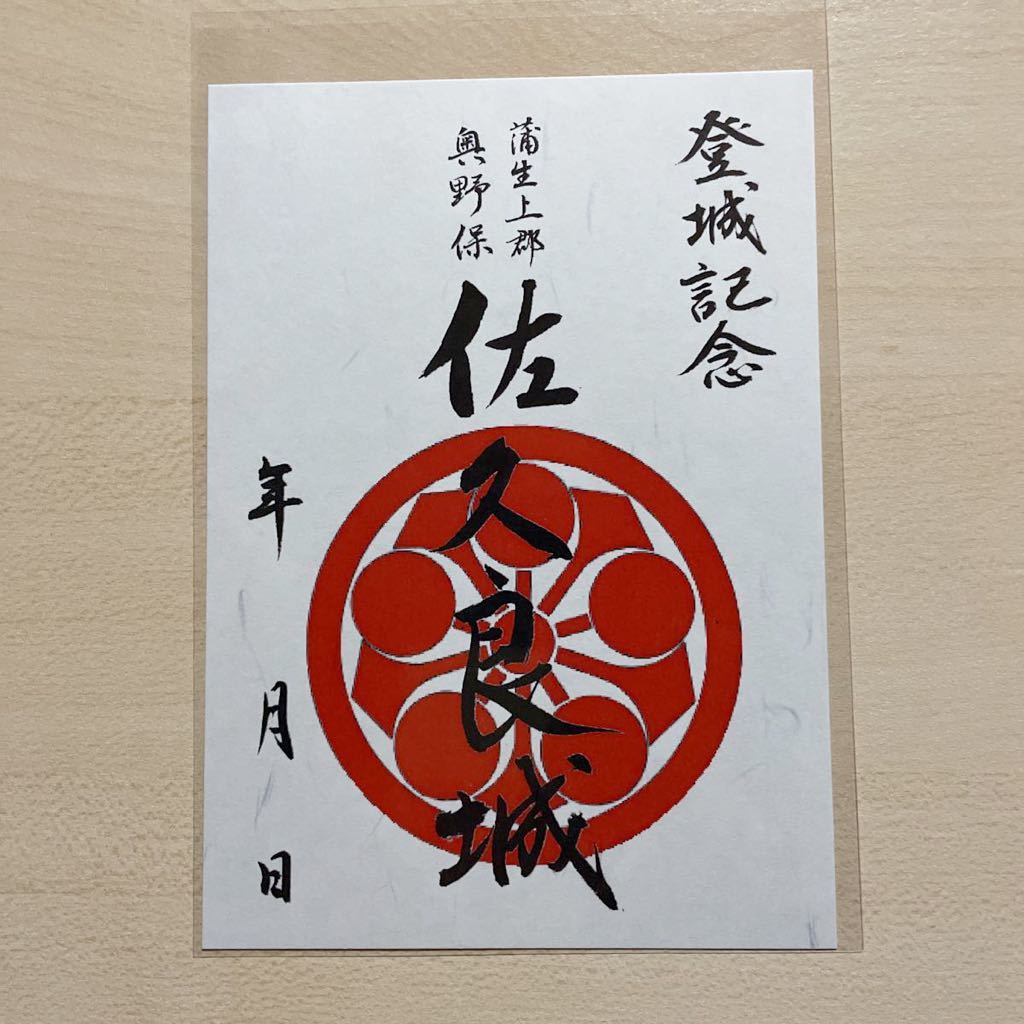 登城記念
蒲生上郡
奥野保
佐久良城
年月日